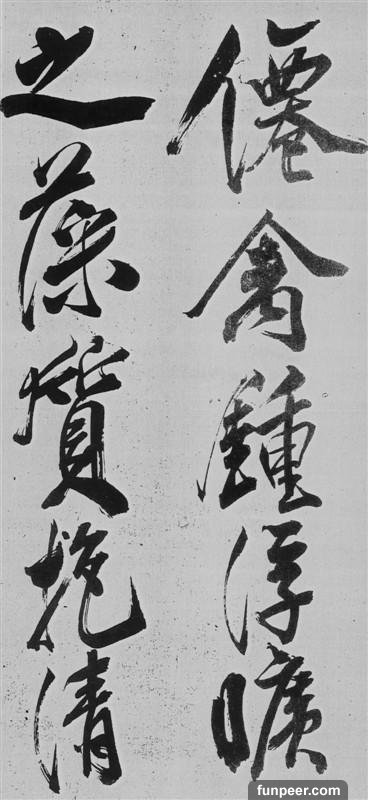 僊禽鍾浮曠
之藻質抱清
funpeer.com